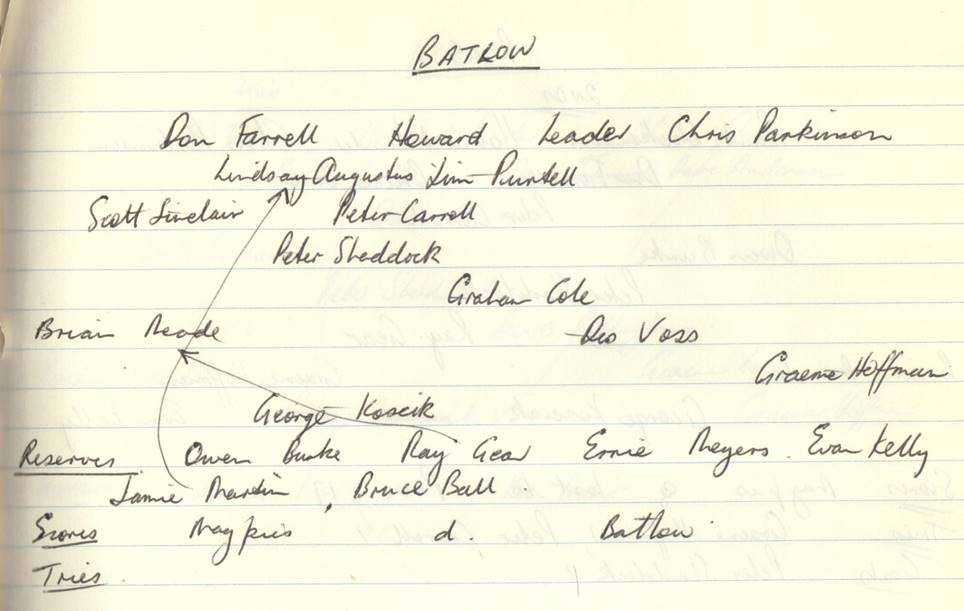 BATLOW
Don Farrell Howard Leader Chris Parkinson
Lindsay Augustus Jim Purtell
Scott Sinclair Peter Carroll
Peter Shaddock
Graham Cole
Brian Meade Des Voss
Graeme Hoffman
George Koscik
Reserves Owen Burke Ray Gear Ernie Meyers. Evan Kelly
Jamie Martin, Bruce Ball.
Scores Magpies d. Batlow.
Tries.